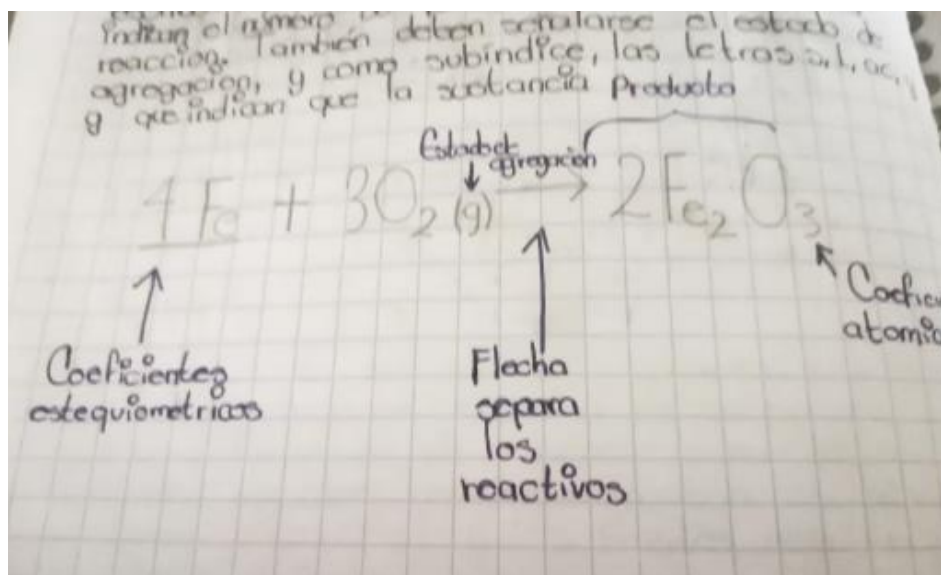 indican el número
reacción. También deben señalarse el estado de
agregación, y como subíndice, las letras s, l, ac,
g que indican que la sustancia
Producto
Estado de
agregación
4Fe + 3O₂(g) → 2Fe₂O₃
Coeficientes
estequiometricos
Flecha
separa
los
reactivos
atomic